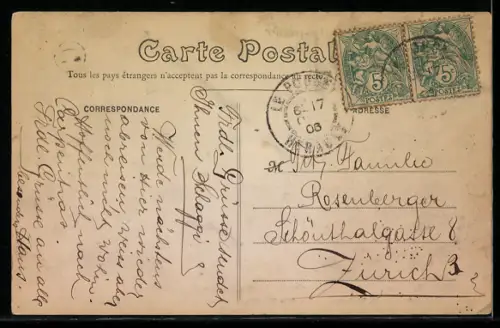 Carte Postale
Tous les pays étrangers n'acceptent pas la correspondance au recto
CORRESPONDANCE
ADRESSE
5
POSTES
5
POSTES
LE
17
08
Frdl. Grüsse sendet
Ihnen
Werde nächstens
von hier wieder
abreisen, weiss aber
noch nicht wohin.
Hoffentlich nach
Carpentras.
Frdl. Grüsse an alle
Hans.
Familie
Rosenberger
Schönthalgasse 8
Zürich 3